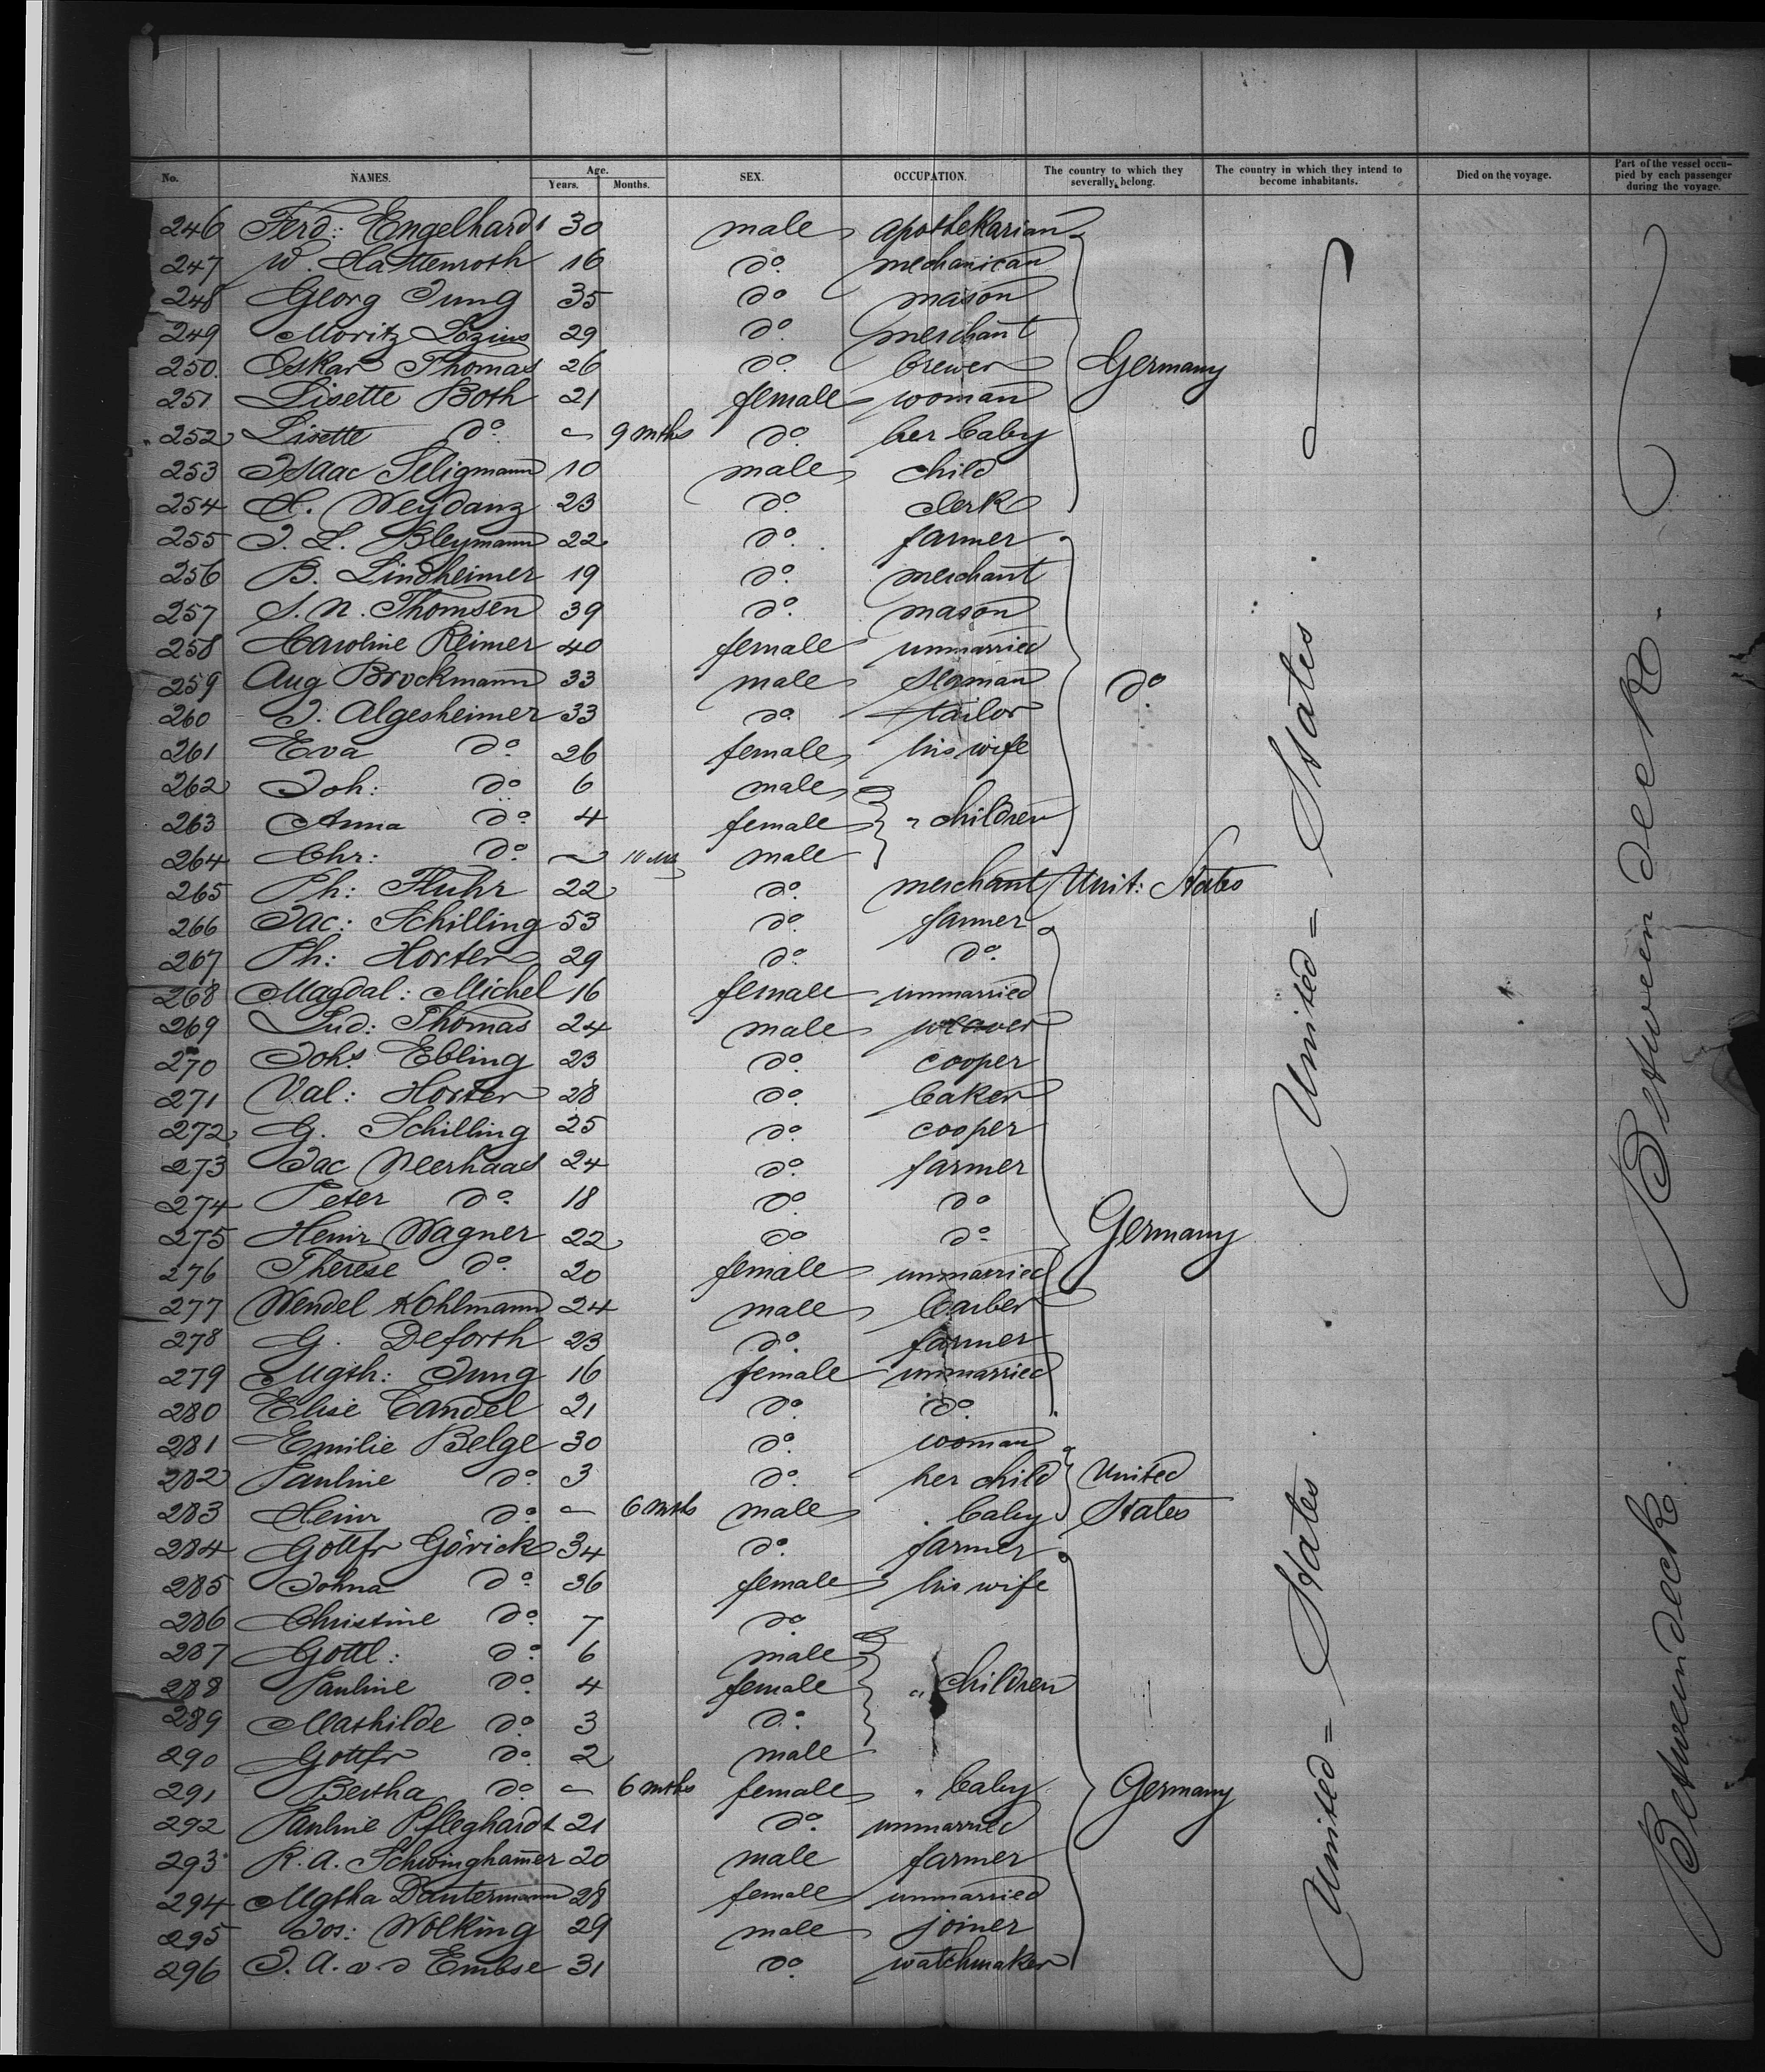 No. NAMES. Age. Years. Months. SEX. OCCUPATION. The country to which they severally belong. The country in which they intend to become inhabitants. Died on the voyage. Part of the vessel occupied by each passenger during the voyage.
246 Ferd: Engelhardt 30 male apothekarian
247 W. Hattenroth 16 do. mechanican
248 Georg Jung 35 do mason
249 Moritz Lozius 29 do. merchant
250. Oskar Thomas 26 do. brewer Germany
251 Lisette Both 21 female woman
252 Lisette do. — 9 mths do. her baby
253 Isaac Seligmann 10 male child
254 H. Weydanz 23 do. clerk
255 J. L. Bleymann 22 do. farmer
256 B. Lindheimer 19 do. merchant
257 S. N. Thomsen 39 do. mason
258 Caroline Reimer 40 female unmarried
259 Aug Brockmann 33 male do.
260 J. Algesheimer 33 do. tailor
261 Eva do 26 female his wife
262 Joh: do 6 male
263 Anna do. 4 female " children
264 Chr: do. — 10 mths male
265 Ph: Fluhr 22 do. merchant Unit: States
266 Jac: Schilling 53 do. farmer
267 Ph: Horter 29 do. do.
268 Magdal: Michel 16 female unmarried
269 Lud: Thomas 24 male weaver
270 Johs Ebling 23 do. cooper
271 Val: Horter 28 do. baker
272 G. Schilling 25 do. cooper
273 Jac Neerhaas 24 do. farmer
274 Peter do. 18 do. do
275 Heinr Wagner 22 do do. Germany
276 Therese do. 20 female unmarried
277 Wendel Kohlmann 24 male barber
278 G. Deforth 23 do. farmer
279 Mgth: Jung 16 female unmarried
280 Elise Candel 21 do. do.
281 Emilie Belge 30 do. woman
282 Pauline do. 3 do. her child United
283 Heinr do. — 6 mths male " baby States
284 Gottfr Görick 34 do. farmer
285 Johna do. 36 female his wife
286 Christine do. 7 do.
287 Gottl: do. 6 male
288 Pauline do. 4 female " children
289 Mathilde do. 3 do.
290 Gottfr do. 2 male
291 Bertha do. — 6 mths female " baby Germany
292 Pauline Pfleghardt 21 do. unmarried
293 R. A. Schwinghamer 20 male farmer
294 Mgtha Dautermann 28 female unmarried
295 Jos: Wolking 29 male joiner
296 J. A. v. d Embse 31 do watchmaker
United = States
United = States
Betweendeck
Betweendeck